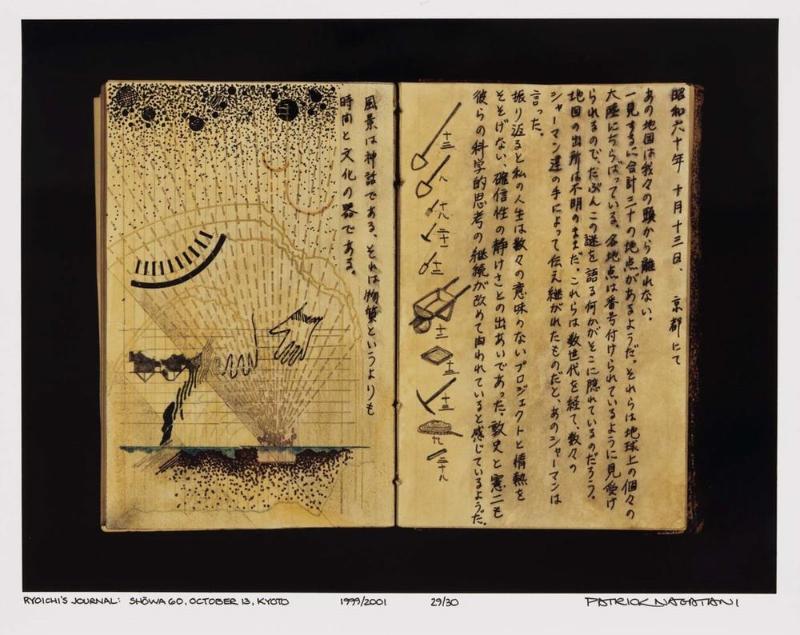 昭和六十年 十月十三日、京都にて
あの地図は我々の頭から離れない。
一見するに合計三十の地点があるようだ。それらは地球上の個々の
大陸にちらばっている。各地点は番号付けられているように見受け
られるので、たぶんこの謎を語る何かがそこに隠れているのだろう。
地図の出所は不明のままだ。これらは数世代を経て、数々の
シャーマン達の手によって伝え継がれたものだと、あのシャーマンは
言った。
振り返ると私の人生は数々の意味のないプロジェクトと情熱を
そそげない、確信性の静けさとの出あいであった。敦史と憲二も
彼らの科学的思考の継続が改めて問われていると感じているようだ。
十三
八
十三
十三
十三
九
二十八
風景は神話である、それは物質というよりも
時間と文化の器である。
RYOICHI'S JOURNAL: SHŌWA 60, OCTOBER 13, KYOTO 1999/2001 29/30 PATRICK NAGATANI